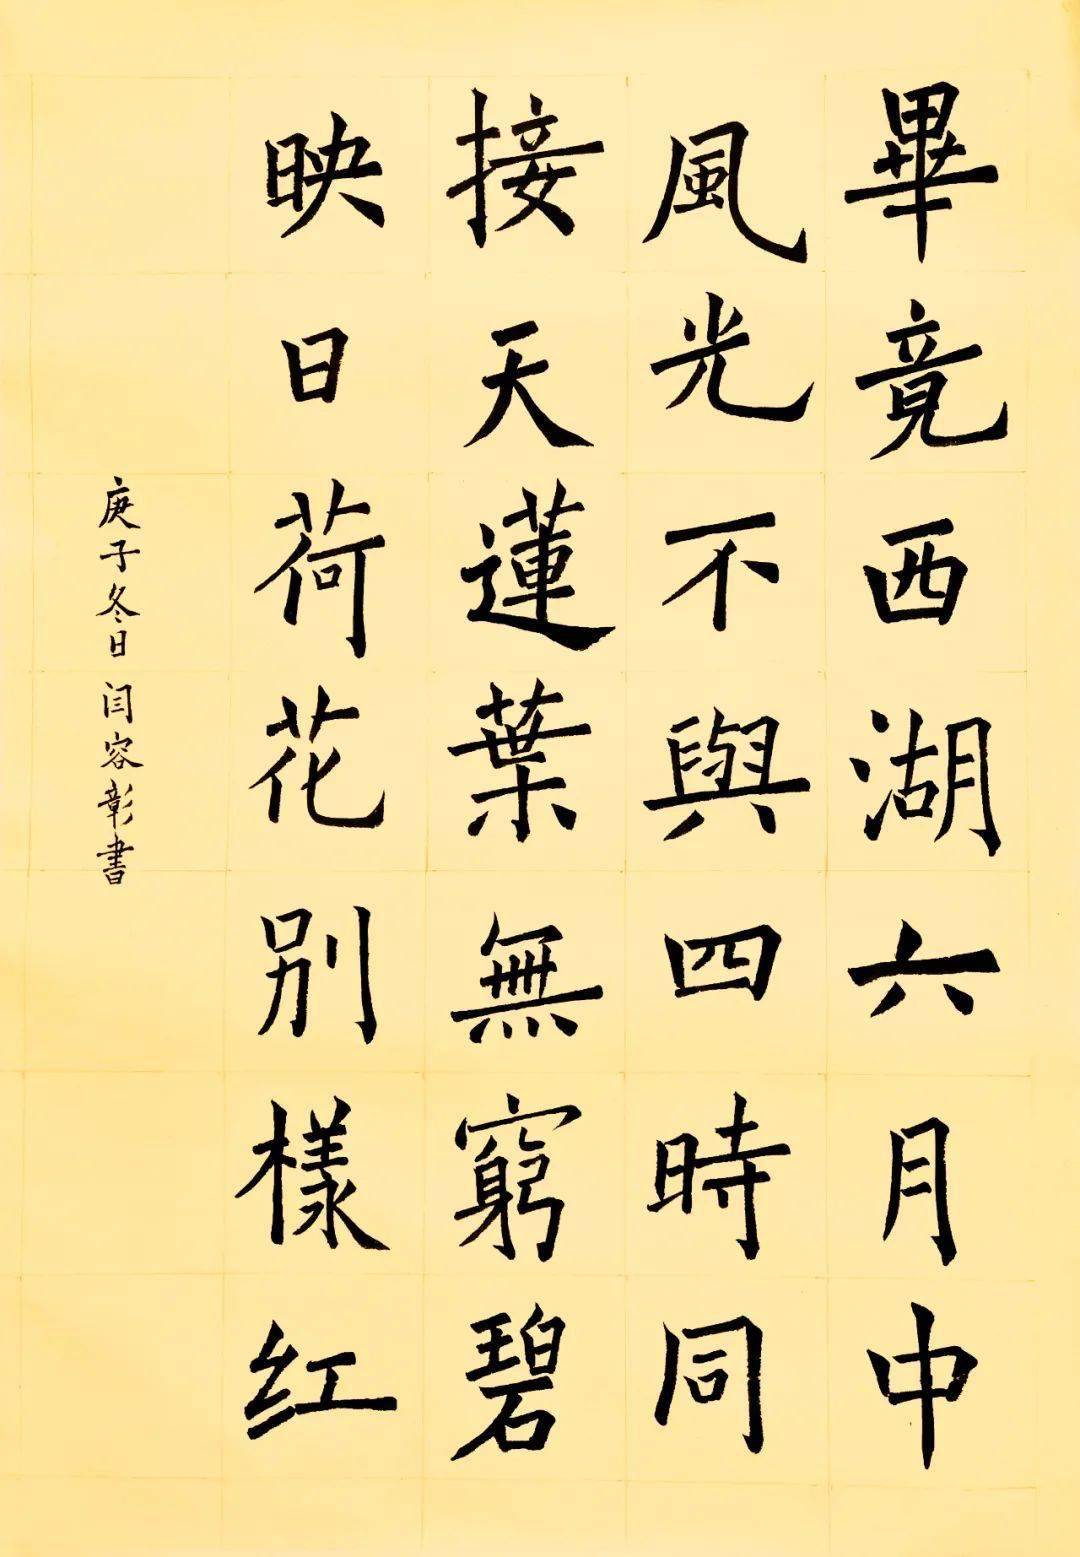 畢竟西湖六月中
風光不與四時同
接天蓮葉無窮碧
映日荷花别樣红
庚子冬日闫容彰書